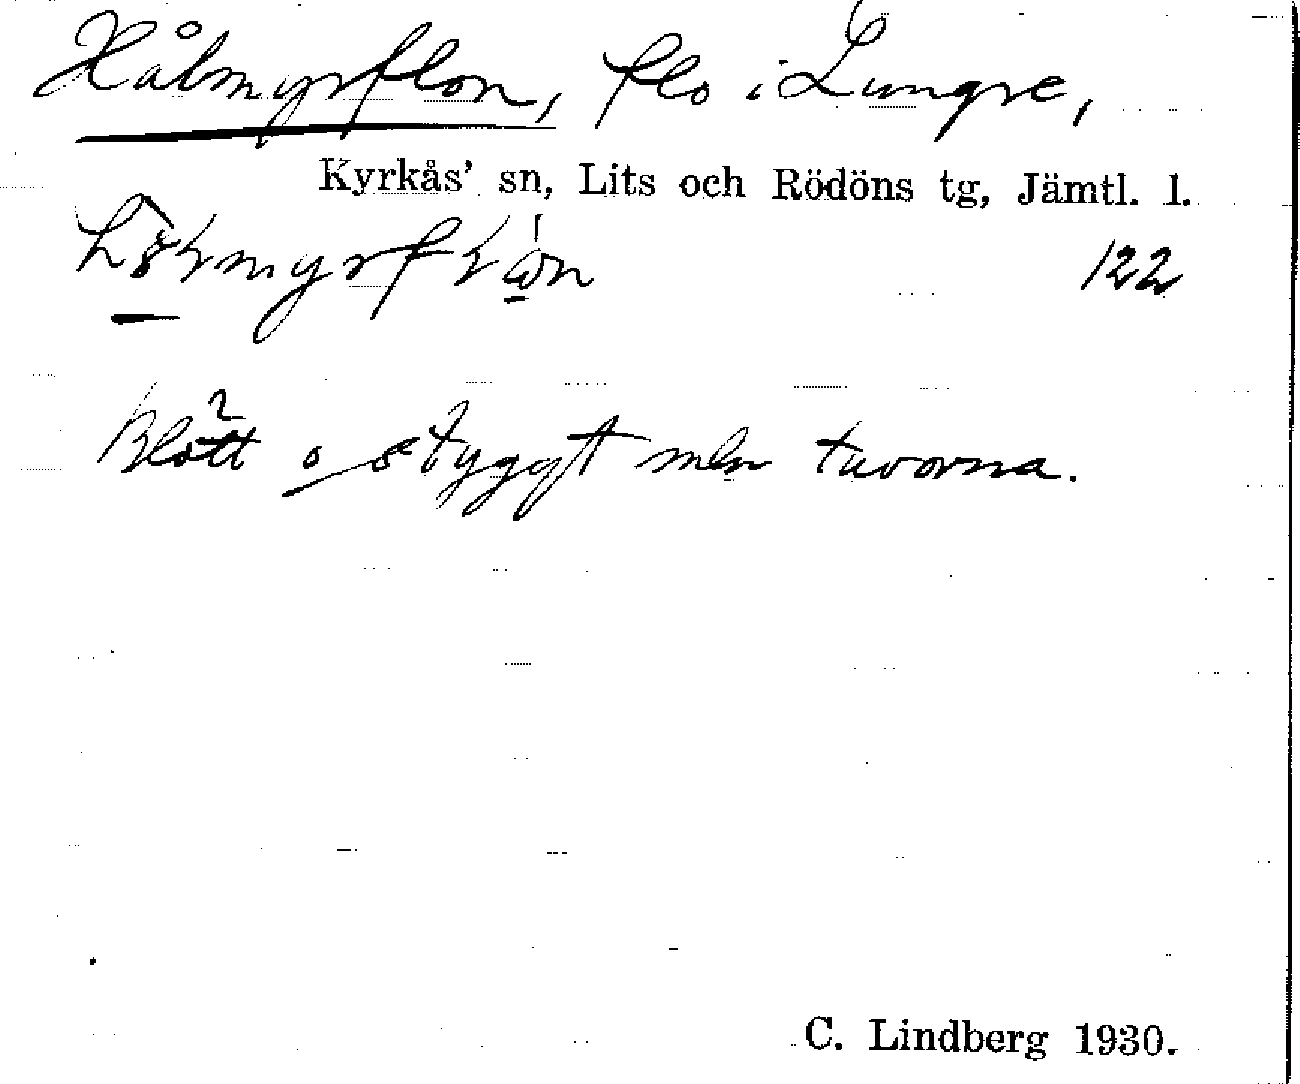 Hålmyrflon, flo i Lungre,
Kyrkås' sn, Lits och Rödöns tg, Jämtl. l.
122
Blött o styggt mln tuvorna.
C. Lindberg 1930.